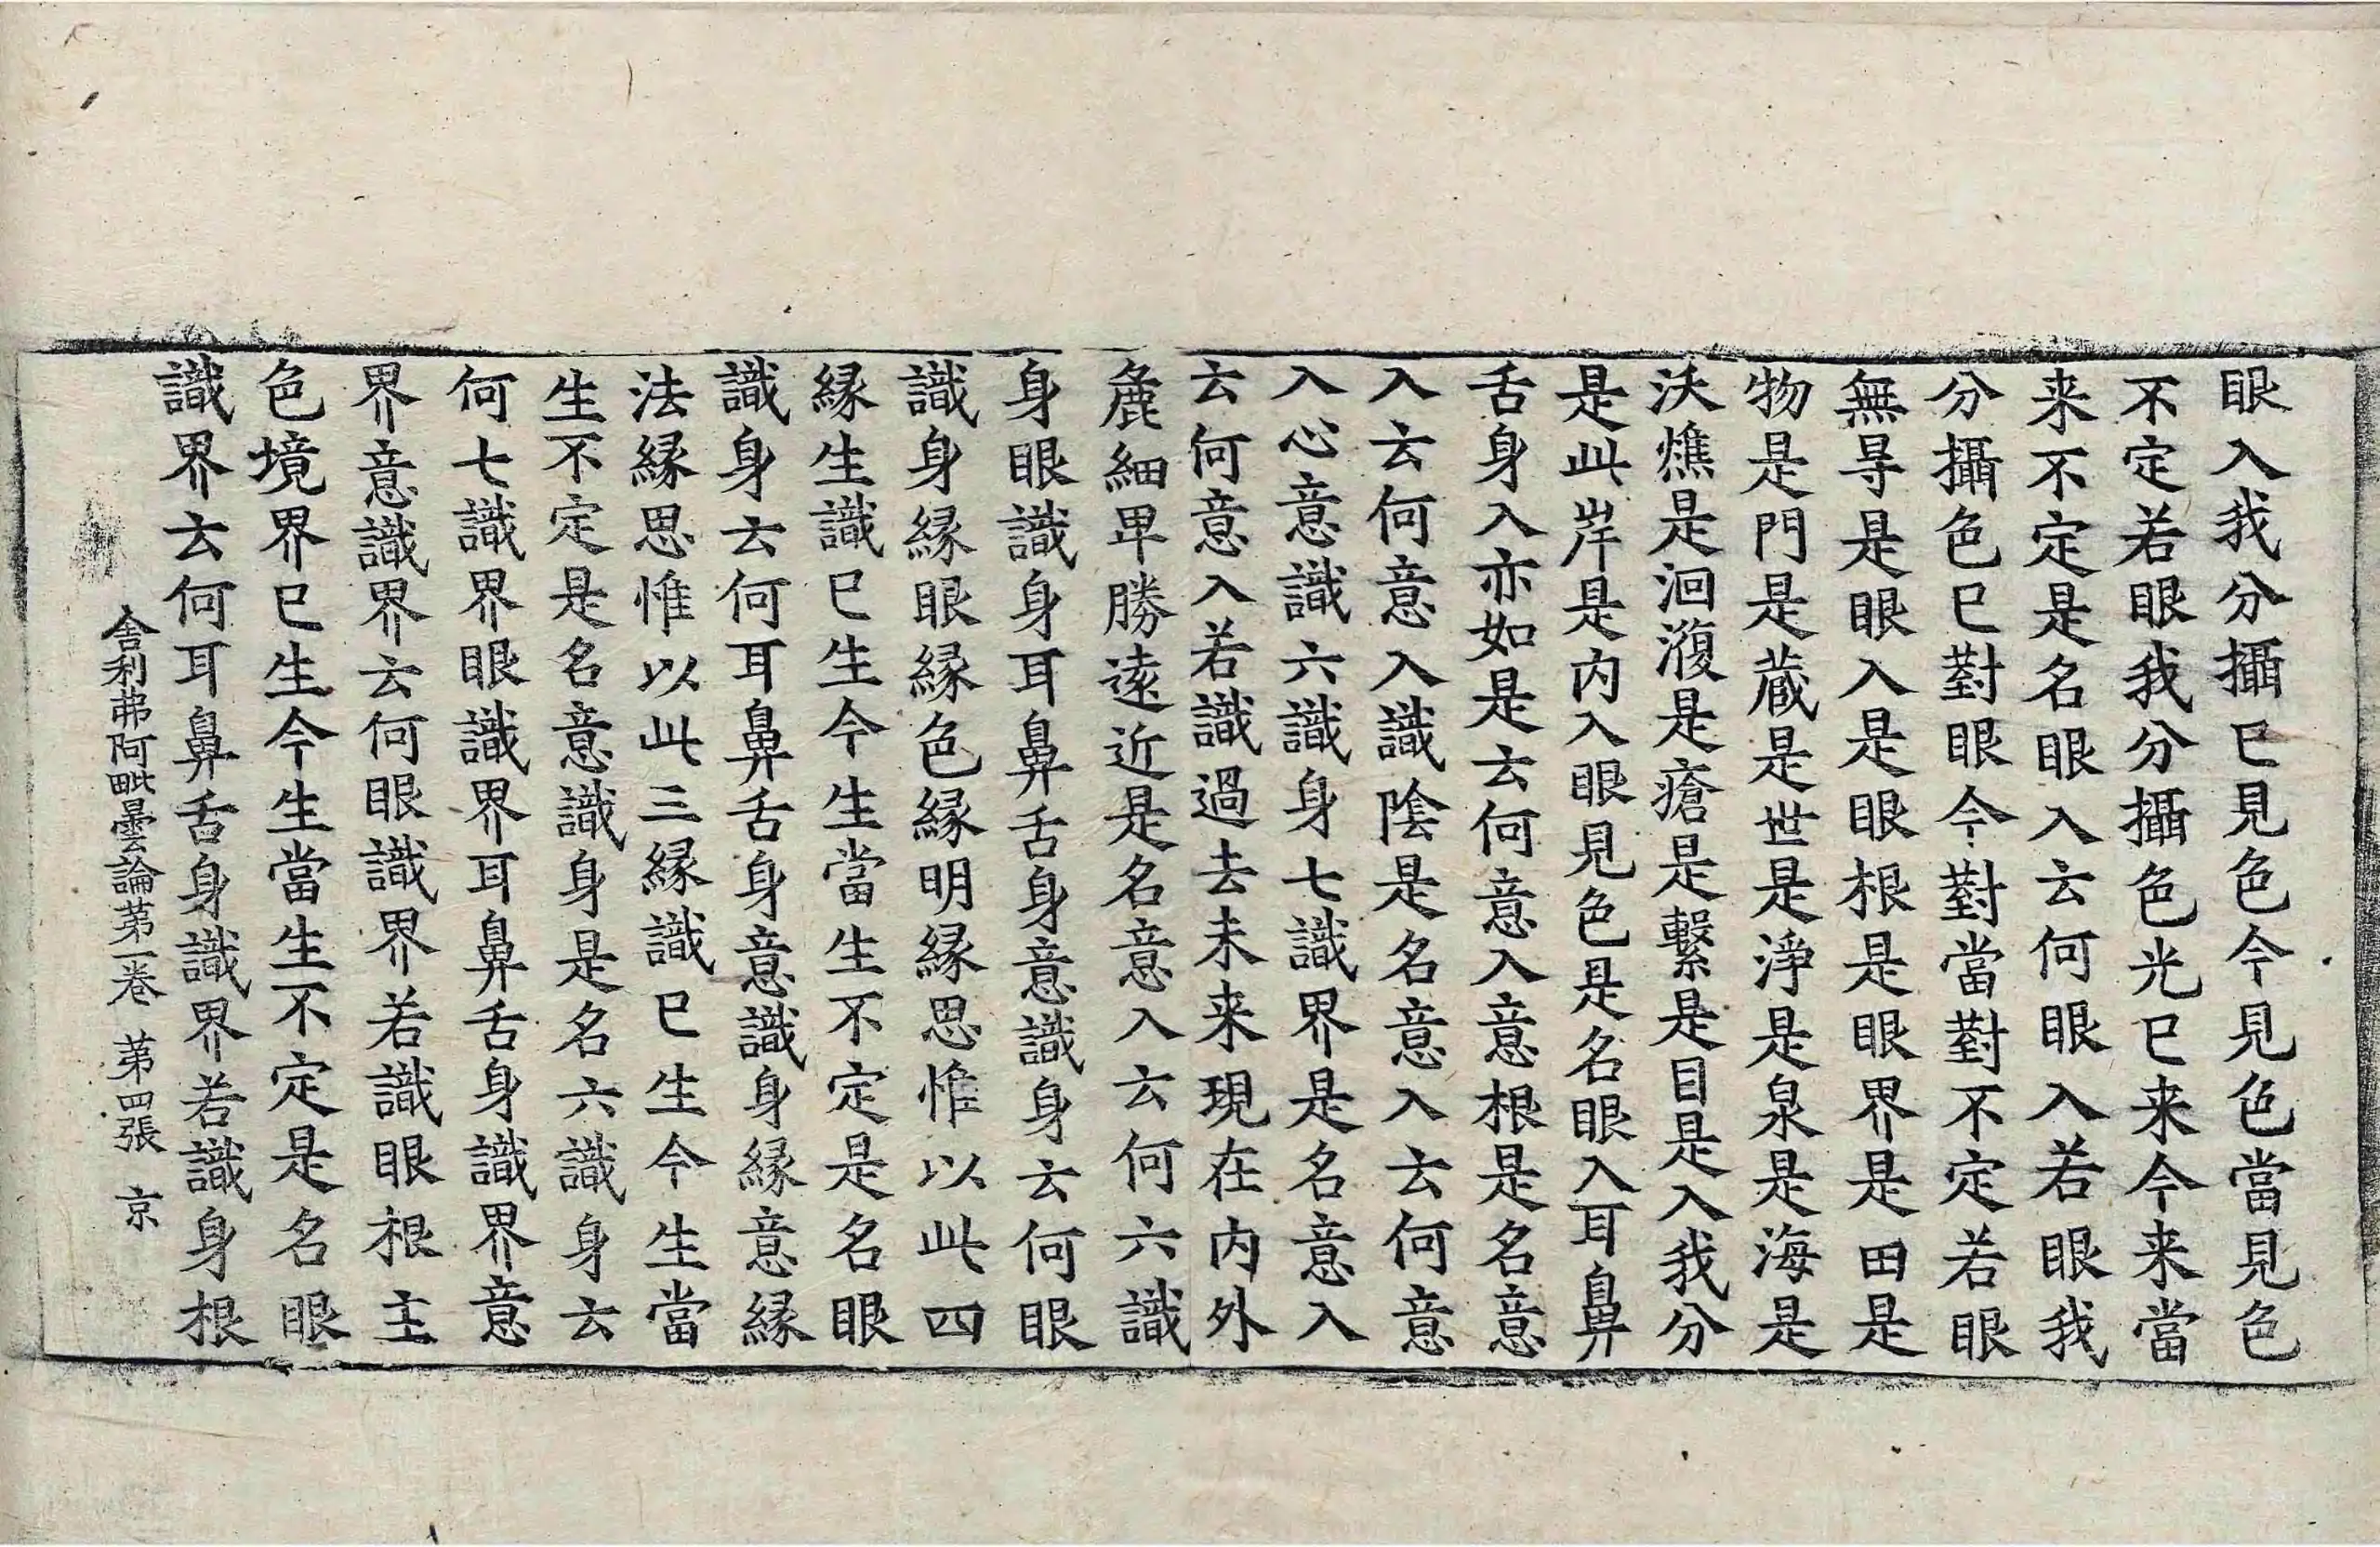 眼入我分攝已見色今見色當見色
不定若眼我分攝色光已来今来當
来不定是名眼入云何眼入若眼我
分攝色已對眼今對當對不定若眼
無㝵是眼入是眼根是眼界是田是
物是門是蔵是世是淨是泉是海是
沃燋是洄澓是瘡是繫是目是入我分
是此岸是内入眼見色是名眼入耳鼻
舌身入亦如是云何意入意根是名意
入云何意入識陰是名意入云何意
入心意識六識身七識界是名意入
云何意入若識過去未来現在内外
麁細卑勝遠近是名意入云何六識
身眼識身耳鼻舌身意識身云何眼
識身縁眼縁色縁明縁思惟以此四
縁生識已生今生當生不定是名眼
識身云何耳鼻舌身意識身縁意縁
法縁思惟以此三縁識已生今生當
生不定是名意識身是名六識身云
何七識界眼識界耳鼻舌身識界意
界意識界云何眼識界若識眼根主
色境界已生今生當生不定是名眼
識界云何耳鼻舌身識界若識身根
舍利弗阿毗曇論第一卷 第四張 京